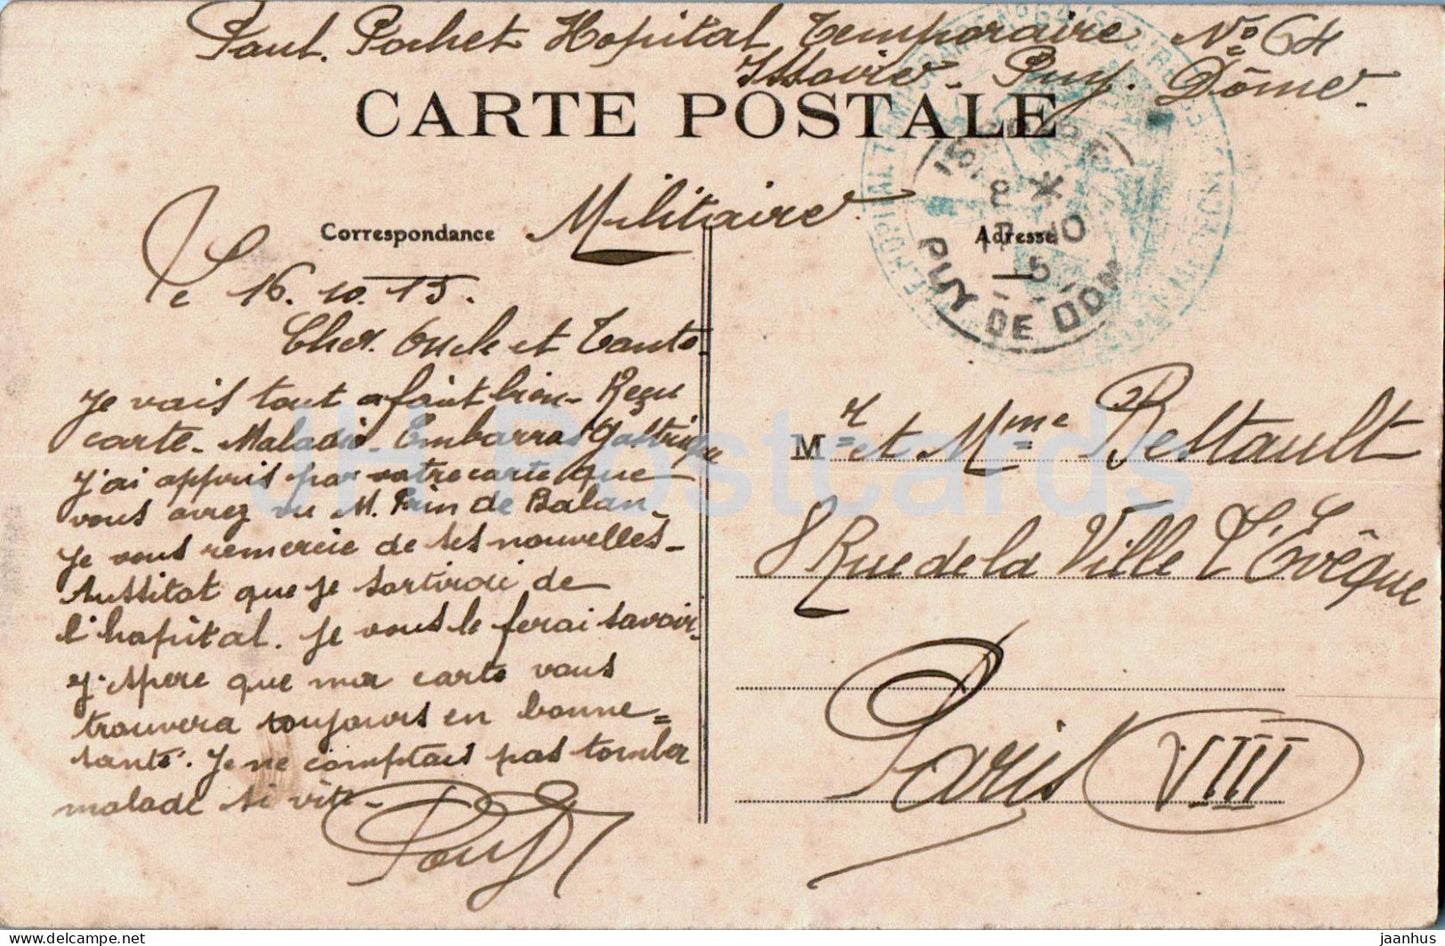 Paul. Pochet Hopital Temporaire No 64
Issoire. Puy. Dôme.
CARTE POSTALE
Militaire
Correspondance
Adresse
ISSOIRE
8 *
17 10
15
PUY DE DOME
Le 16. 10. 15.
Cher. Oncle et Tante.
Je vais tout a faint bien. Reçu
carte. Maladie. Embarras Gastrique
J'ai appris par votre carte que
vous avez vu M. Prin de Balan.
Je vous remercie de ses nouvelles.
Aussitot que je sortirai de
l'hopital. Je vous le ferai savoir.
J'espere que ma carte vous
trouvera toujours en bonne
santé. Je ne comptais pas tomber
malade si vite.
Paul
Mr et Mme Bestault
8 Rue de la Ville L'Evêque
Paris VIII
JH Postcards
www.delcampe.net
jaanhus